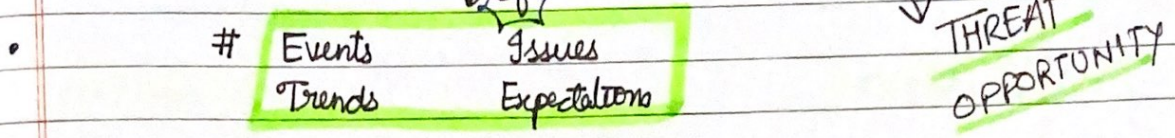 # Events Issues
Trends Expectations
THREAT
OPPORTUNITY